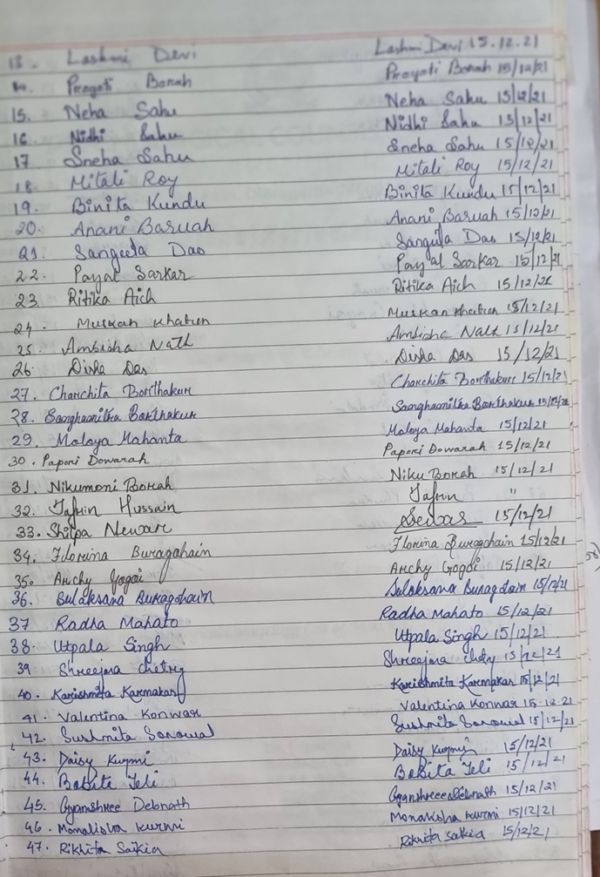 13. Lashmi Devi Lashmi Devi 15.12.21
14. Preyoti Borah Preyoti Borah 15/12/21
15. Neha Sahu Neha Sahu 15/12/21
16 Nidhi Sahu Nidhi Sahu 15/12/21
17 Sneha Sahu Sneha Sahu 15/12/21
18 Mitali Roy Mitali Roy 15/12/21
19. Binita Kundu Binita Kundu 15/12/21
20. Anani Baruah Anani Baruah 15/12/21
21. Sangeeta Das Sangita Das 15/12/21
22. Payal Sarkar Payal Sarkar 15/12/21
23. Ritika Aich Ritika Aich 15/12/21
24. Muskan Khatun Muskan Khatun 15/12/21
25. Ambisha Nath Ambisha Nath 15/12/21
26. Disha Das Disha Das 15/12/21
27. Charchita Borthakur Charchita Borthakur 15/12/21
28. Saanghamitha Borthakur Saanghamitha Borthakur 15/12/21
29. Moloya Mahanta Moloya Mahanta 15/12/21
30. Papori Dowarah Papori Dowarah 15/12/21
31. Nikumoni Borah Niku Borah 15/12/21
32. Jafrin Hussain Jafrin "
33. Shilpa Newar 15/12/21
34. Florina Buragohain Florina Buragohain 15/12/21
35. Archy Gogoi Archy Gogoi 15/12/21
36. Sulaksana Buragohain Sulaksana Buragohain 15/12/21
37 Radha Mahato Radha Mahato 15/12/21
38. Utpala Singh Utpala Singh 15/12/21
39 Shreejma Chetry Shreejma Chetry 15/12/21
40. Karishmita Karmakar Karishmita Karmakar 15/12/21
41. Valentina Konwar Valentina Konwar 15-12-21
42. Sushmita Sonowal Sushmita Sonowal 15/12/21
43. Daisy Kurmi Daisy Kurmi 15/12/21
44. Babita Teli Babita Teli 15/12/21
45. Gyanshree Debnath Gyanshree Debnath 15/12/21
46. Monalisha Kurmi Monalisha Kurmi 15/12/21
47. Rikhita Saikia Rikhita Saikia 15/12/21